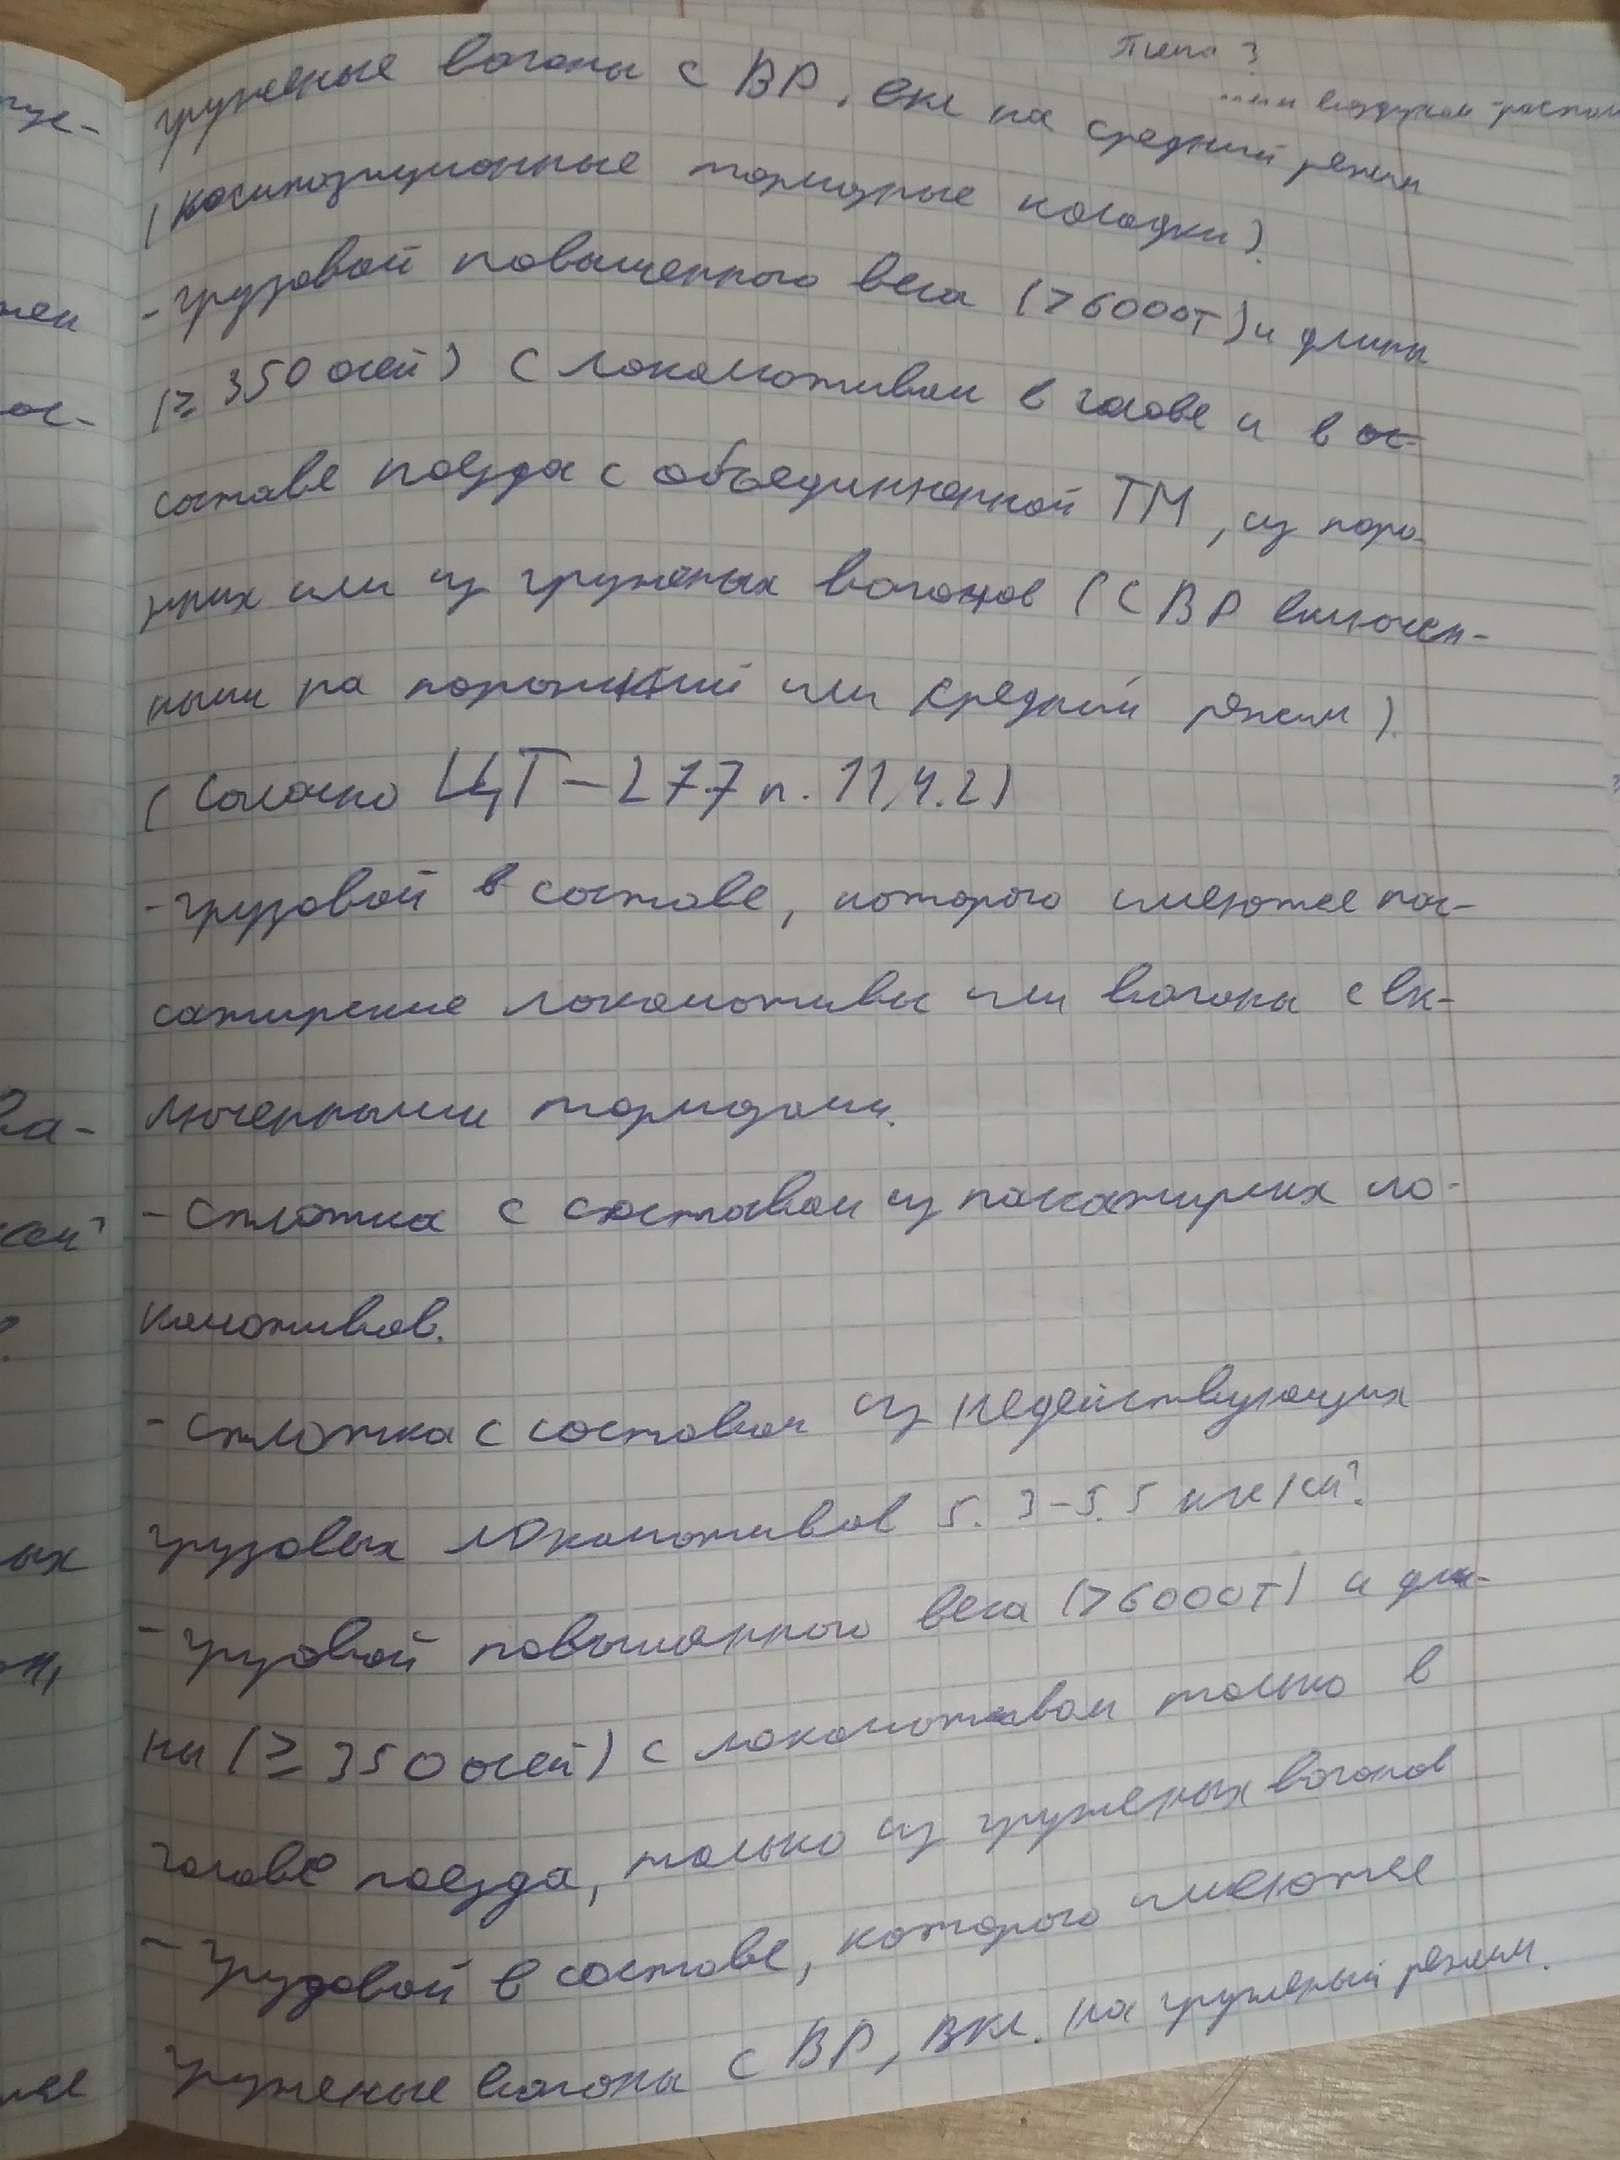 Тема 3
воздухом
груженые вагоны с ВР, вкл на средний режим
(композиционные тормозные колодки).
- грузовой повышенного веса (>6000т) и длины
(≥ 350 осей) с локомотивом в голове и в ос-
составе поезда с объединненной ТМ, из поро-
жних или из груженых вагонов (с ВР включен-
ными на порожний или средний режим).
(согласно ЦТ-277 п. 11.4.2)
- грузовой в составе, которого имеются пас-
сажирские локомотивы или вагоны с вк-
люченными тормозами.
- сплотка с составом из пассажирских ло-
комотивов.
- сплотка с составом из недействующих
грузовых локомотивов 5.3-5.5 кгс/см².
- грузовой повышенного веса (>6000т) и дли-
ны (≥ 350 осей) с локомотивом только в
голове поезда, только из груженых вагонов
- грузовой в составе, которого имеются
груженые вагоны с ВР, вкл. на груженый режим.
пус-
ос-
ых